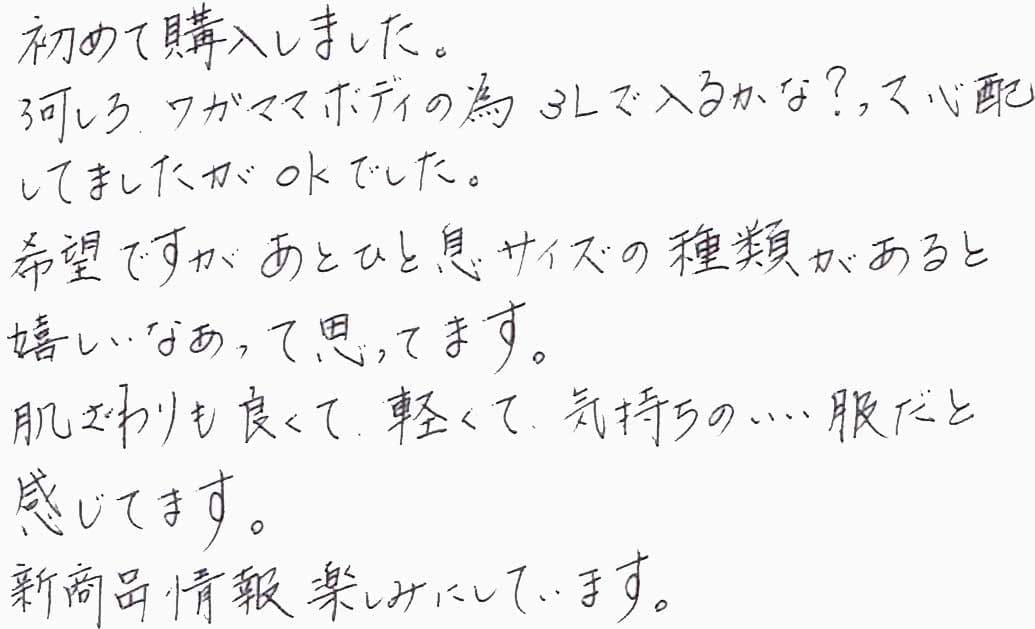 初めて購入しました。
何しろ、ワガママボディの為 3Lで入るかな?って心配
してましたが okでした。
希望ですが あとひと息サイズの種類があると
嬉しいなあって思ってます。
肌ざわりも良くて、軽くて、気持ちのいい服だと
感じてます。
新商品情報楽しみにしています。